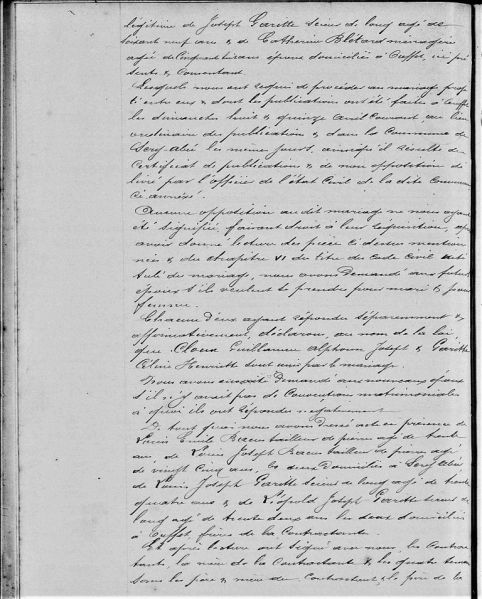 légitime de Joseph Parotte scieur de long agé de
soixant neuf ans & de Catherine Blétard ménagère
agée de cinquante six ans époux domiciliés à Ouffet, ici pré
sents & consentant.
Lesquels nous ont requis de procéder au mariage proje
té entre eux & dont les publications ont été faites à Ouffet
les dimanches huit & quinze avril courant au lieu
ordinaire des publications & dans la commune de
Seny aussi les mêmes jours, ainsi qu'il résulte du
certificat de publication & de non opposition dé
livré par l'officier de l'état civil de la dite commune
ci annexé.
Aucune opposition au dit mariage ne nous ayant
été signifiée, faisant droit à leur réquisition, après
avoir donné lecture des pièces ci dessus mention
nées & du chapitre VI du titre du code civil inti
tulé du mariage, nous avons demandé aux futurs
époux s'ils veulent se prendre pour mari & pour
femme.
Chacun d'eux ayant répondu séparément &
affirmativement, déclarons, au nom de la loi
que Guillaume Alphonse Joseph & Parotte
Célinie Henriette sont unis par le mariage.
Nous avons ensuite demandé aux nouveaux époux
s'il n'y avait pas de convention matrimoniales
à quoi ils ont répondu négativement.
De tout quoi nous avons dressé acte en présence de
Louis Emile tailleur de pierre agé de trente
ans, de Louis Joseph tailleur de pierre agé
de vingt cinq ans, les deux domiciliés à Seny,
de Louis Joseph Parotte scieur de long agé de trente
quatre ans & de Léopold Joseph Parotte scieur de
long agé de trente deux ans les deux domiciliés
à Ouffet, frères de la contractante.
Et après lecture ont signé avec nous, les contrac
tants, la mère de la contractante & les quatre témoins
sous les père & mère du contractant, & le père de la